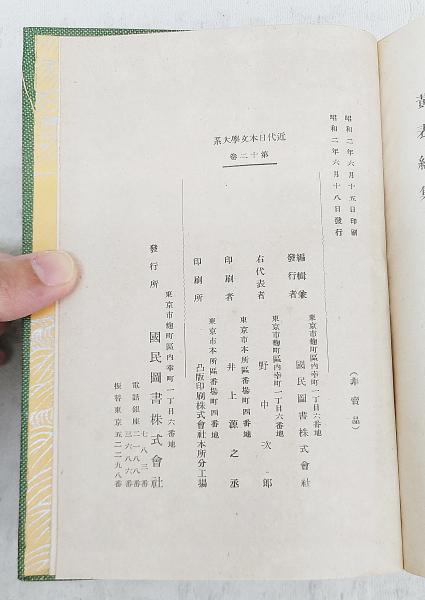 黄表紙集
昭和二年六月十五日印刷
昭和二年六月十八日發行
(非賣品)
近代日本文學大系
第十二卷
東京市麹町區內幸町一丁目六番地
編輯兼發行者 國民圖書株式會社
東京市麹町區內幸町一丁目六番地
右代表者 野中次郎
東京市本所區番場町四番地
印刷者 井上源之丞
東京市本所區番場町四番地
印刷所 凸版印刷株式會社本所分工場
東京市麹町區內幸町一丁目六番地
發行所 國民圖書株式會社
電話銀座
七八三番
二一八八番
三六八六番
振替東京五二二九八番